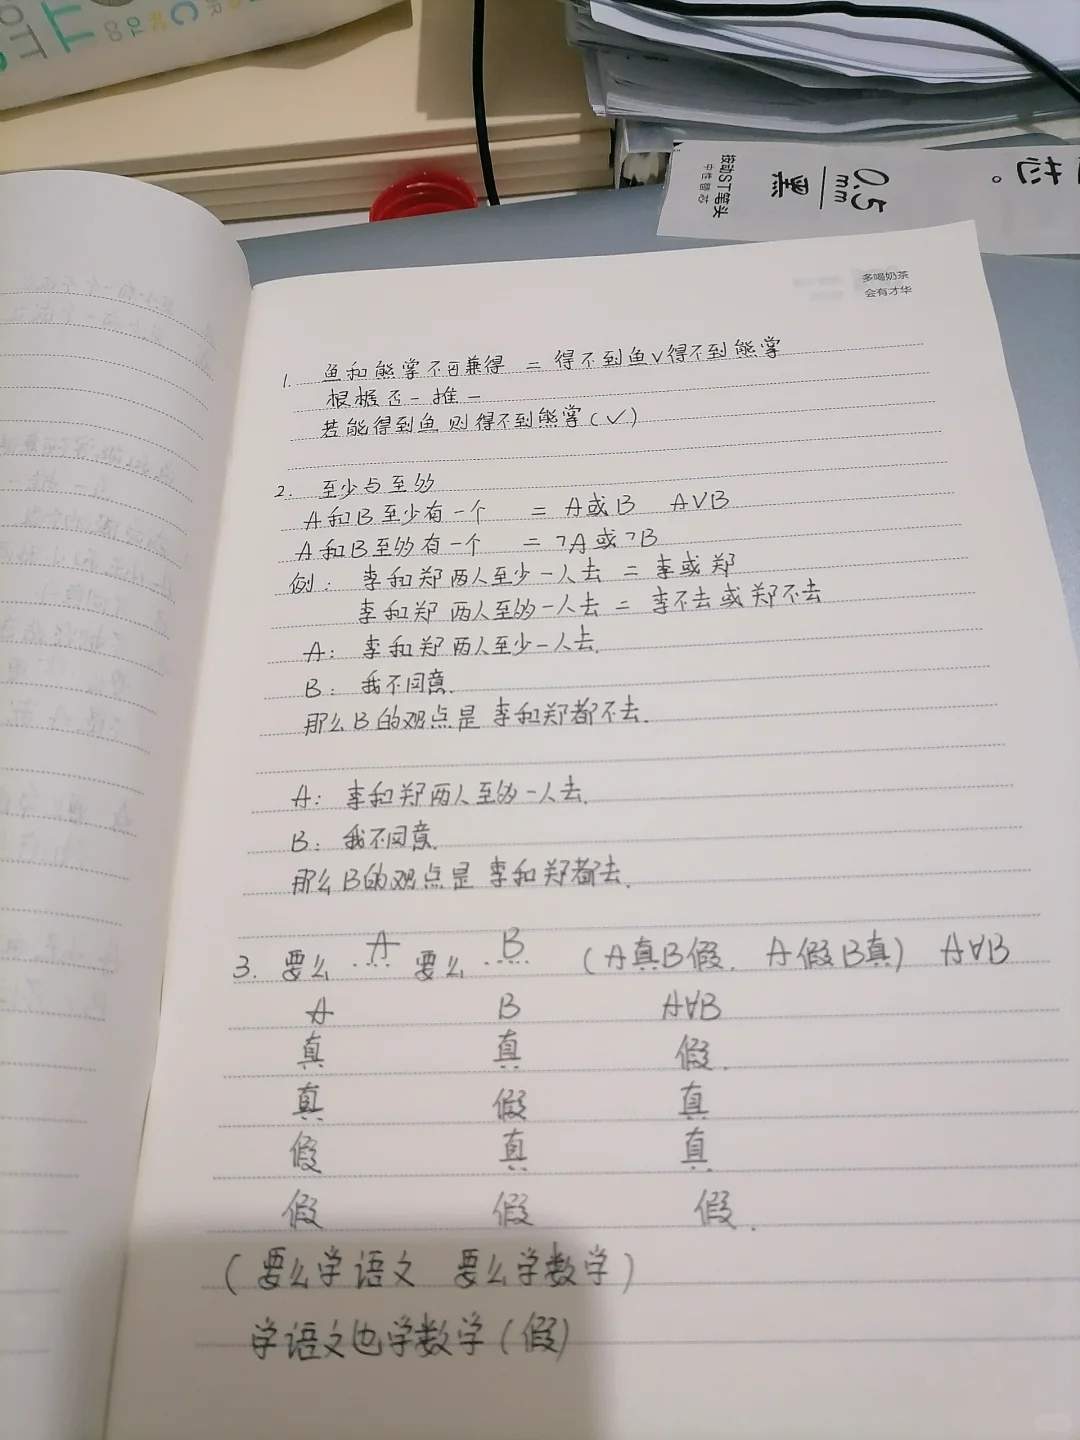 按动ST笔头
中性替芯
0.5
mm
黑
多喝奶茶
会有才华
1. 鱼和熊掌不可兼得 = 得不到鱼∨得不到熊掌
根据否一推一
若能得到鱼 则得不到熊掌(√)
2. 至少与至多
A和B至少有一个 = A或B A∨B
A和B至多有一个 = ¬A或¬B
例: 李和郑两人至少一人去 = 李或郑
李和郑 两人至多一人去 = 李不去或郑不去
A: 李和郑两人至少一人去.
B: 我不同意.
那么B的观点是 李和郑都不去.
A: 李和郑两人至多一人去.
B: 我不同意.
那么B的观点是 李和郑都去.
3. 要么 A... 要么 B... (A真B假. A假B真) A∀B
A B A∀B
真 真 假.
真 假 真
假 真 真
假 假 假.
(要么学语文 要么学数学)
学语文也学数学(假)